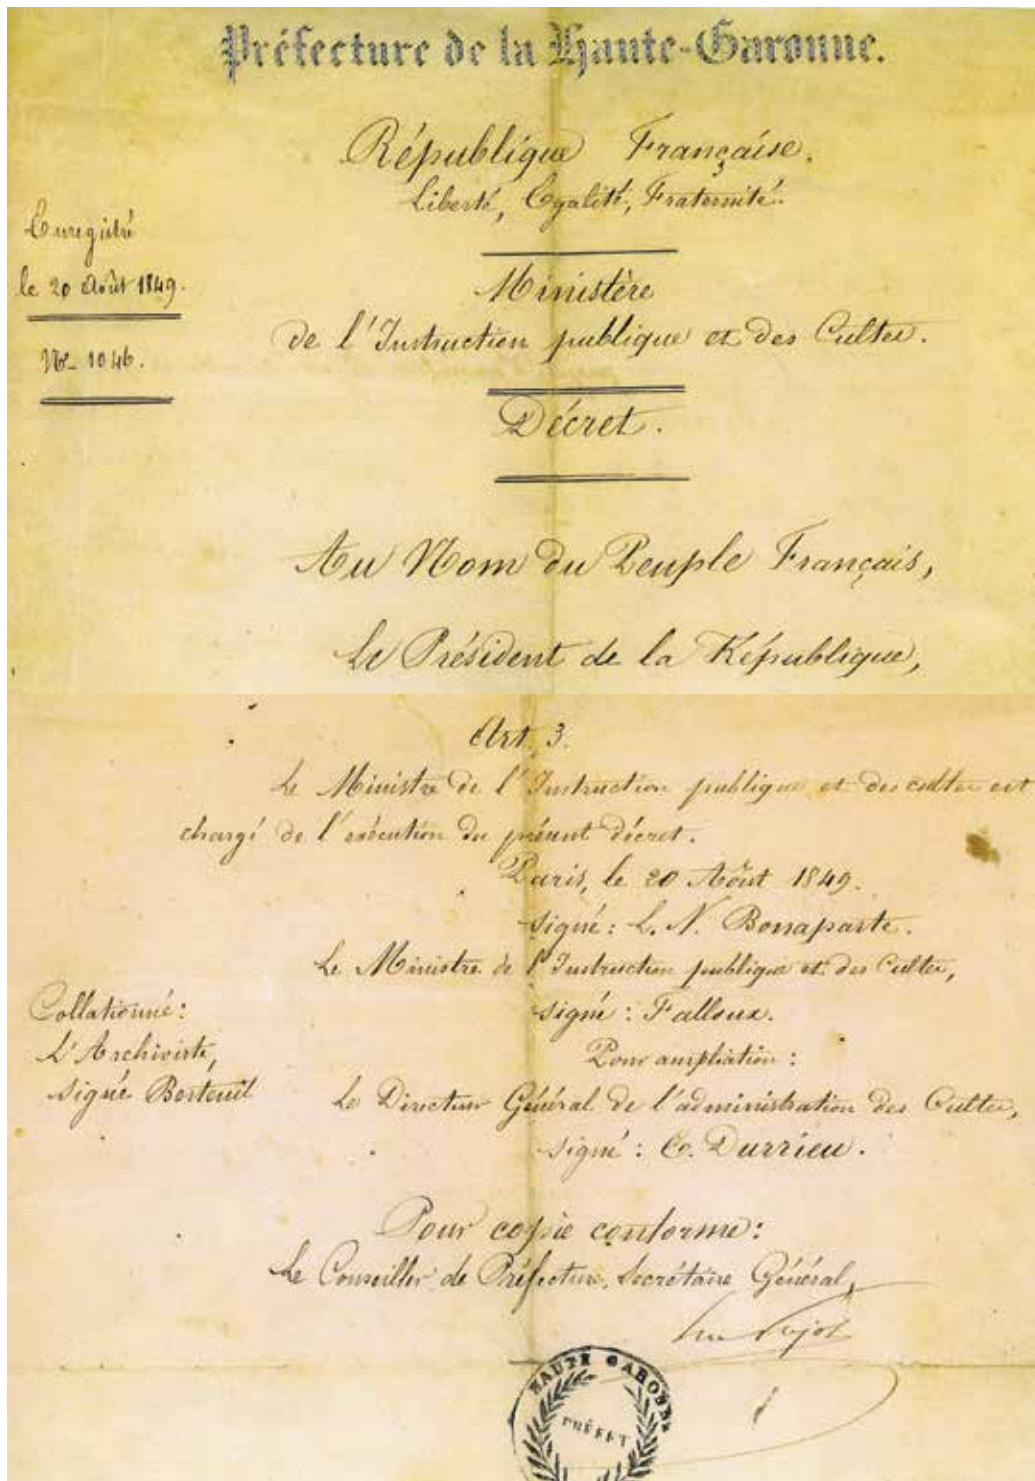 Préfecture de la Haute-Garonne.
République Française.
Liberté, Egalité, Fraternité.
Enregistré
le 20 Août 1849.
No. 1046.
Ministère
de l'Instruction publique et des Cultes.
Décret.
Au Nom du Peuple Français,
Le Président de la République,
Art. 3.
Le Ministre de l'Instruction publique et des cultes est
chargé de l'exécution du présent décret.
Paris, le 20 Août 1849.
signé: L. N. Bonaparte.
Le Ministre de l'Instruction publique et des Cultes,
signé: Falloux.
Collationné:
L'Archiviste,
signé Berteuil
Pour ampliation:
Le Directeur Général de l'administration des Cultes,
signé: E. Durrieu.
Pour copie conforme:
Le Conseiller de Préfecture, Secrétaire Général,
HAUTE GARONNE
PRÉFET